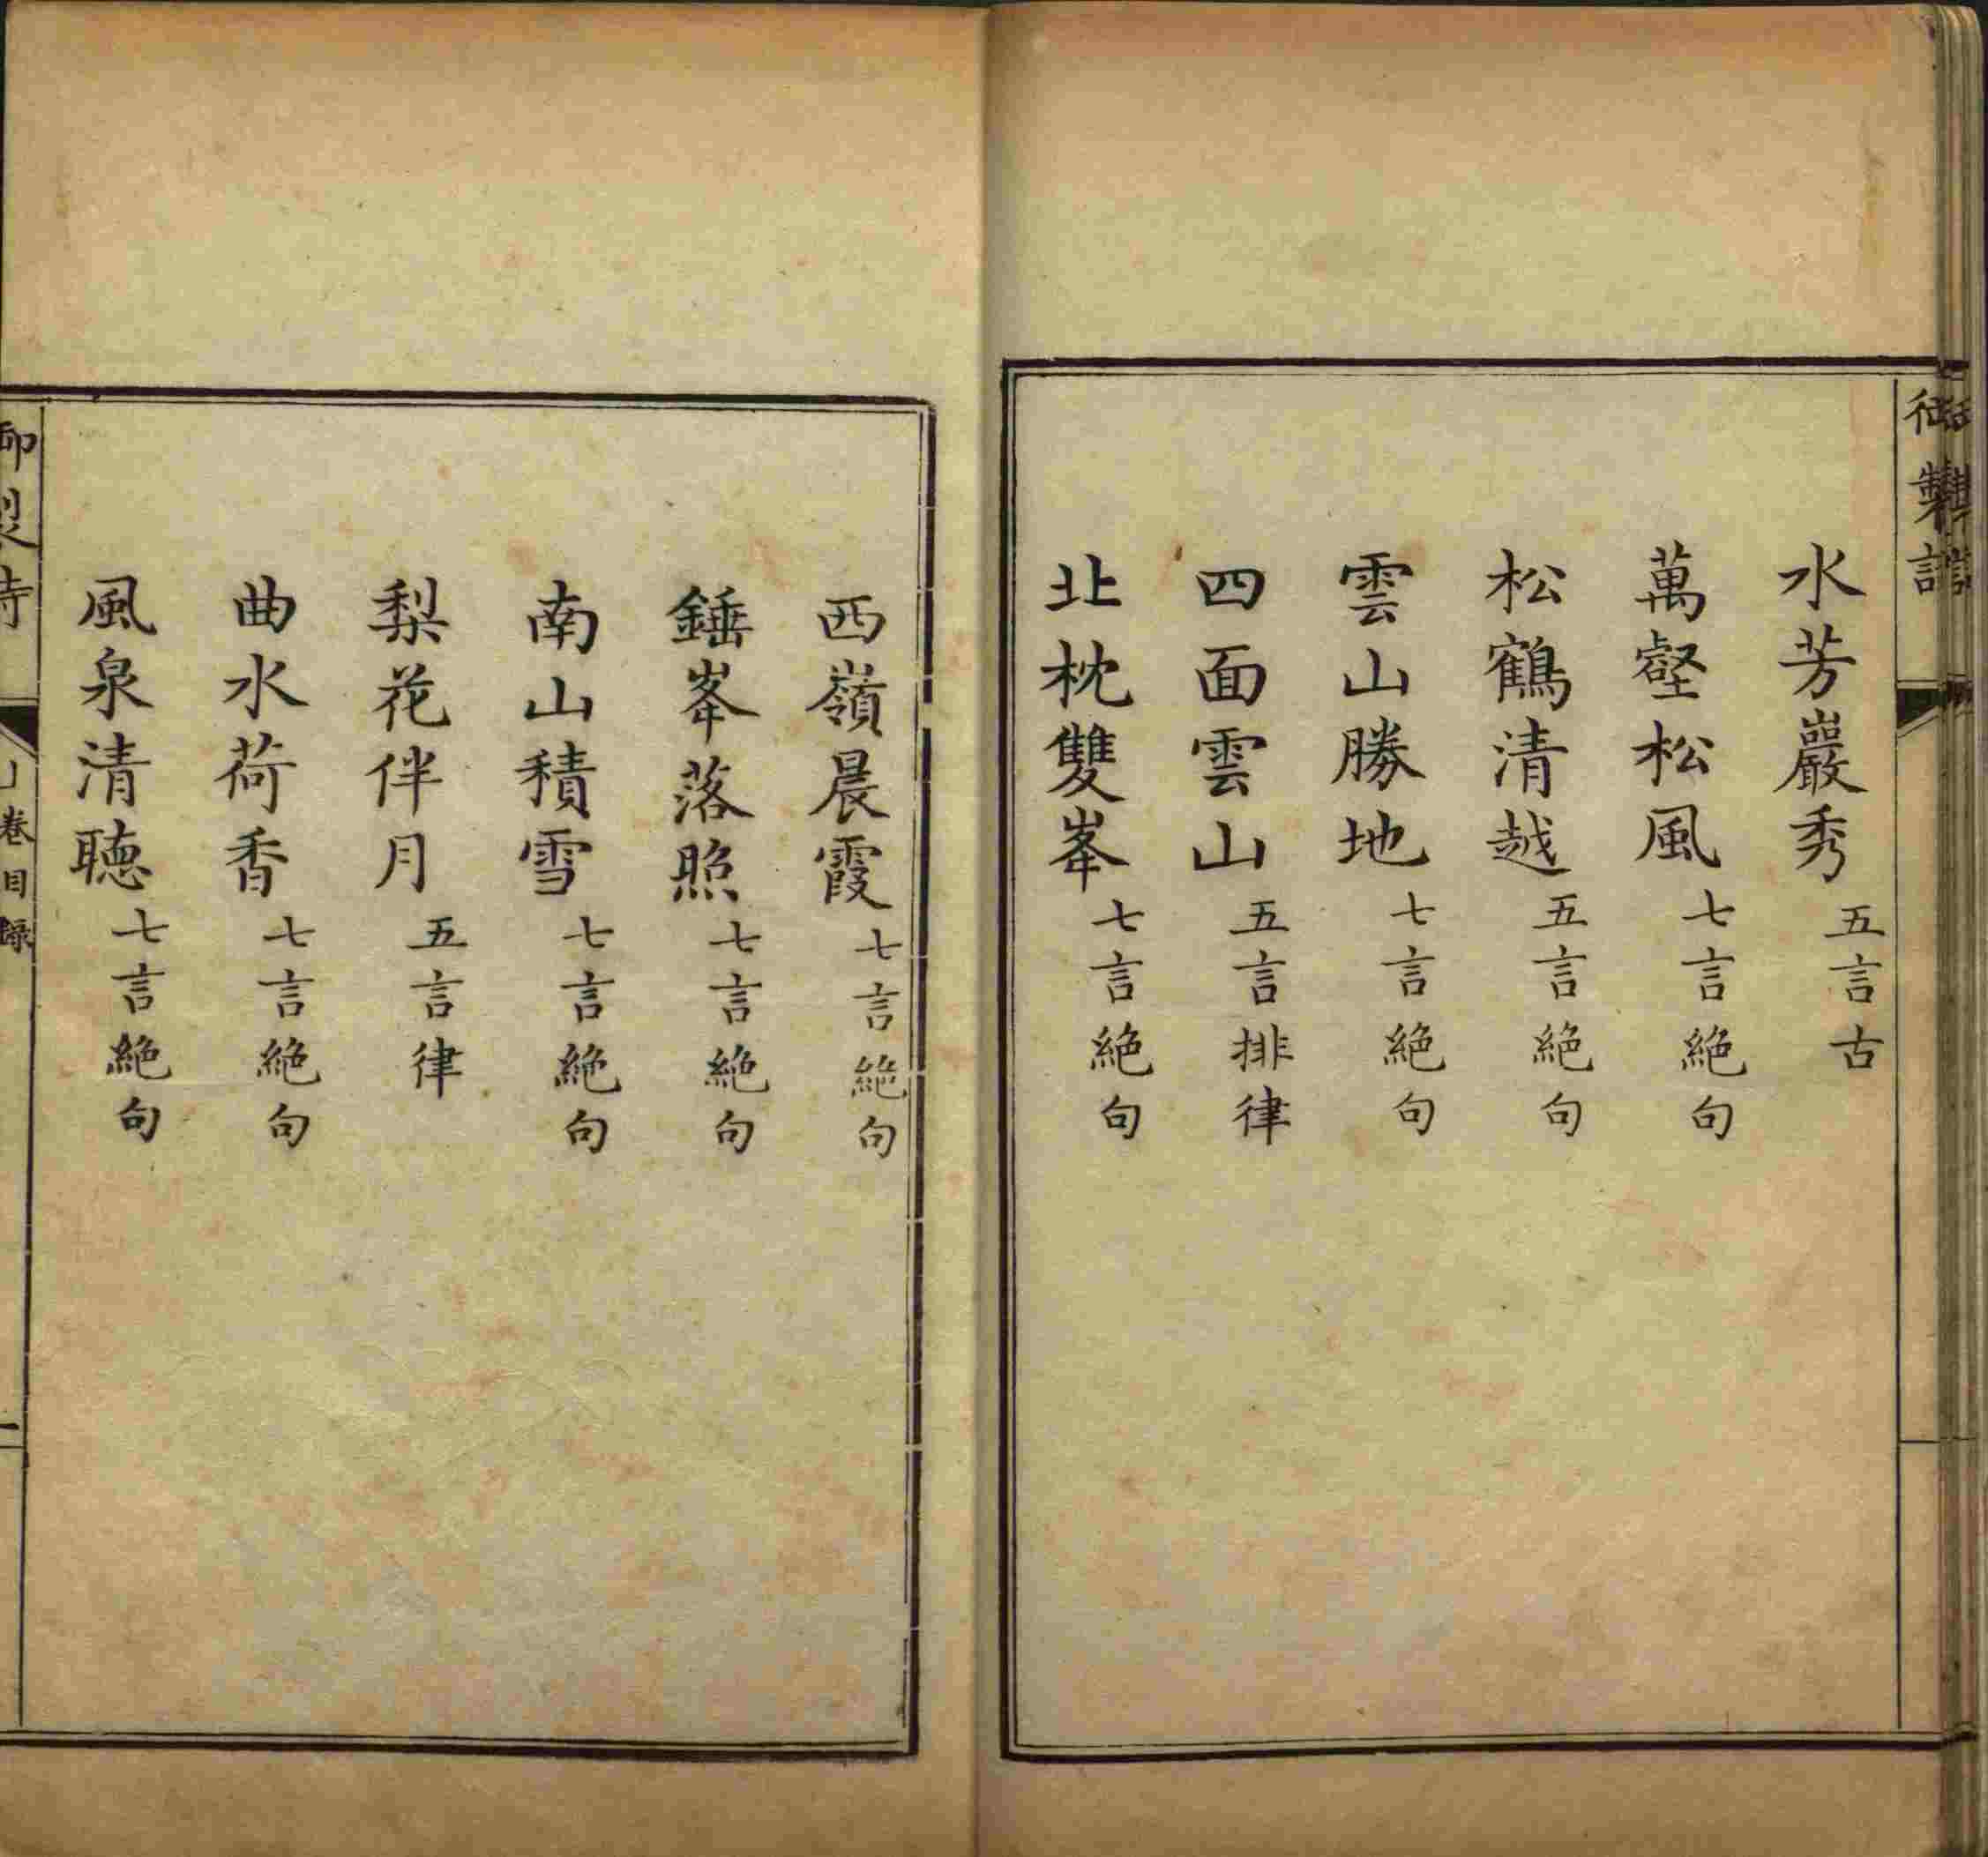 製
水芳巖秀五言古
萬壑松風七言絶句
松鶴清越五言絶句
雲山勝地七言絶句
四面雲山五言排律
北枕雙峯七言絶句
西嶺晨霞七言絶句
錘峯落照七言絶句
南山積雪七言絶句
梨花伴月五言律
曲水荷香七言絶句
風泉清聽七言絶句
卷目録